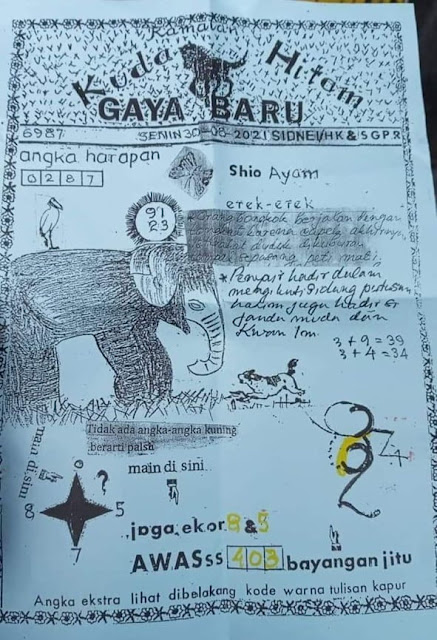 Ramalan
Kuda Hitam
GAYA BARU
6987 SENIN 30-08-2021 SIDNEI/HK & SGPR
angka harapan
0 2 8 7
Shio Ayam
erek-erek
91
23
orang bongkok berjalan dengan
karena
duduk dikuburan
sepasang peti mati
* Penyair hadir dalam
mengikuti sidang putusan
hakim juga hadir &
janda muda dan
Kwan Im.
3 + 9 = 39
3 + 4 = 34
4
Tidak ada angka-angka kuning
berarti palsu
main di sini
main disini
?
8
5
7
jaga ekor 8 & 3
AWASss 403 bayangan jitu
Angka ekstra lihat dibelakang kode warna tulisan kapur